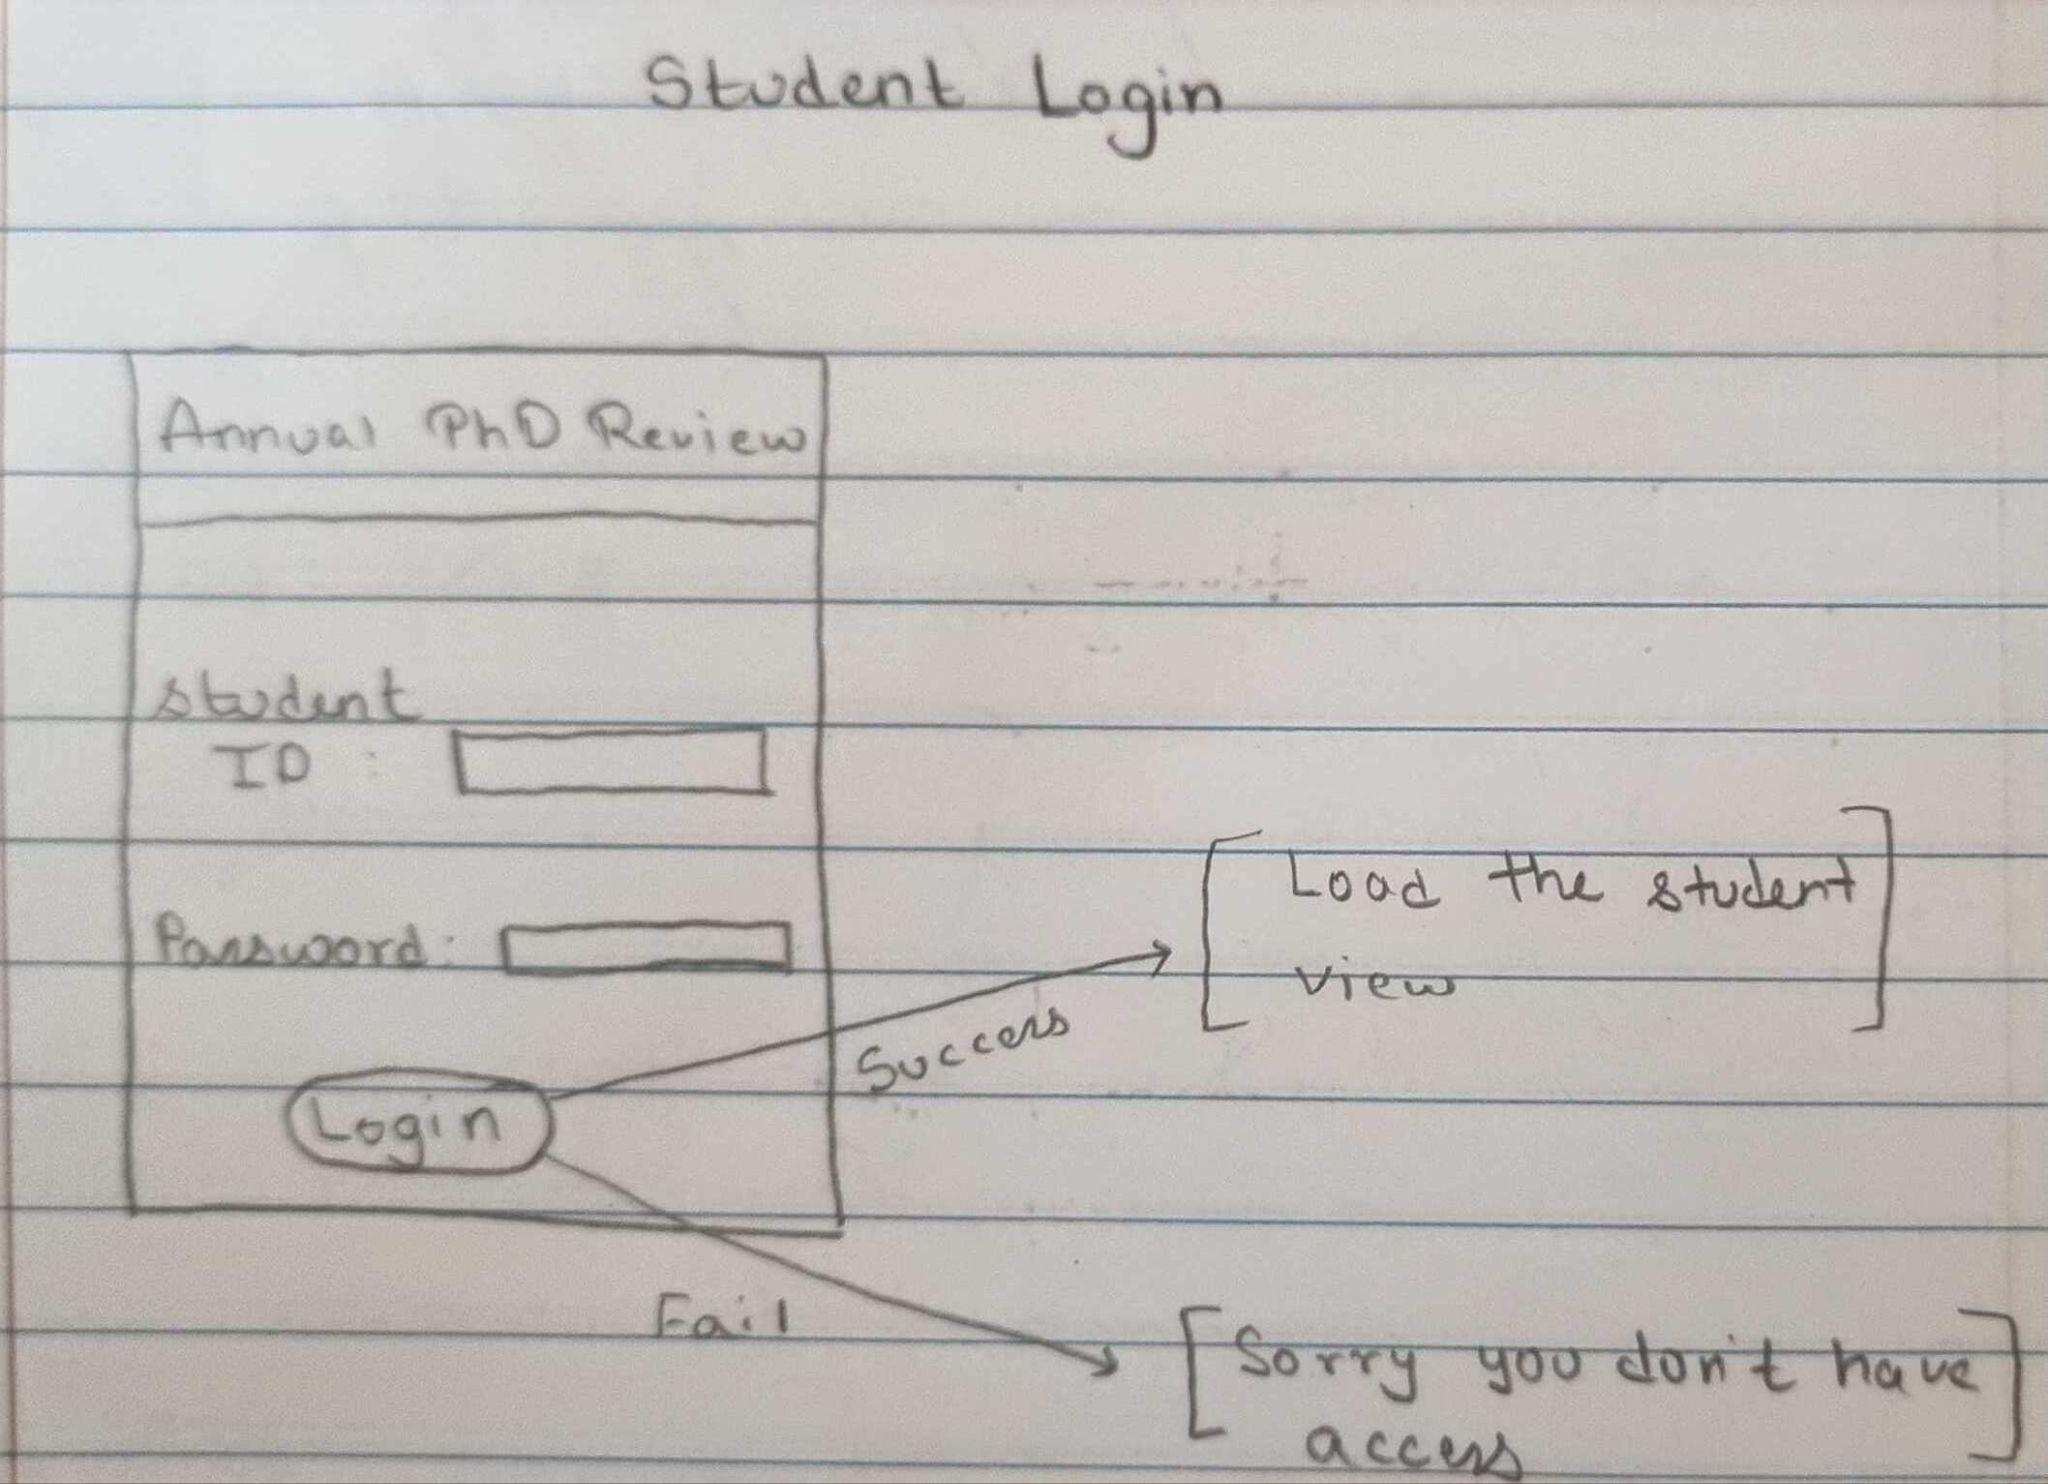 Student Login
Annual PhD Review
Student
ID :
Password:
Login
Success
Load the student
view
Fail
Sorry you don't have
access